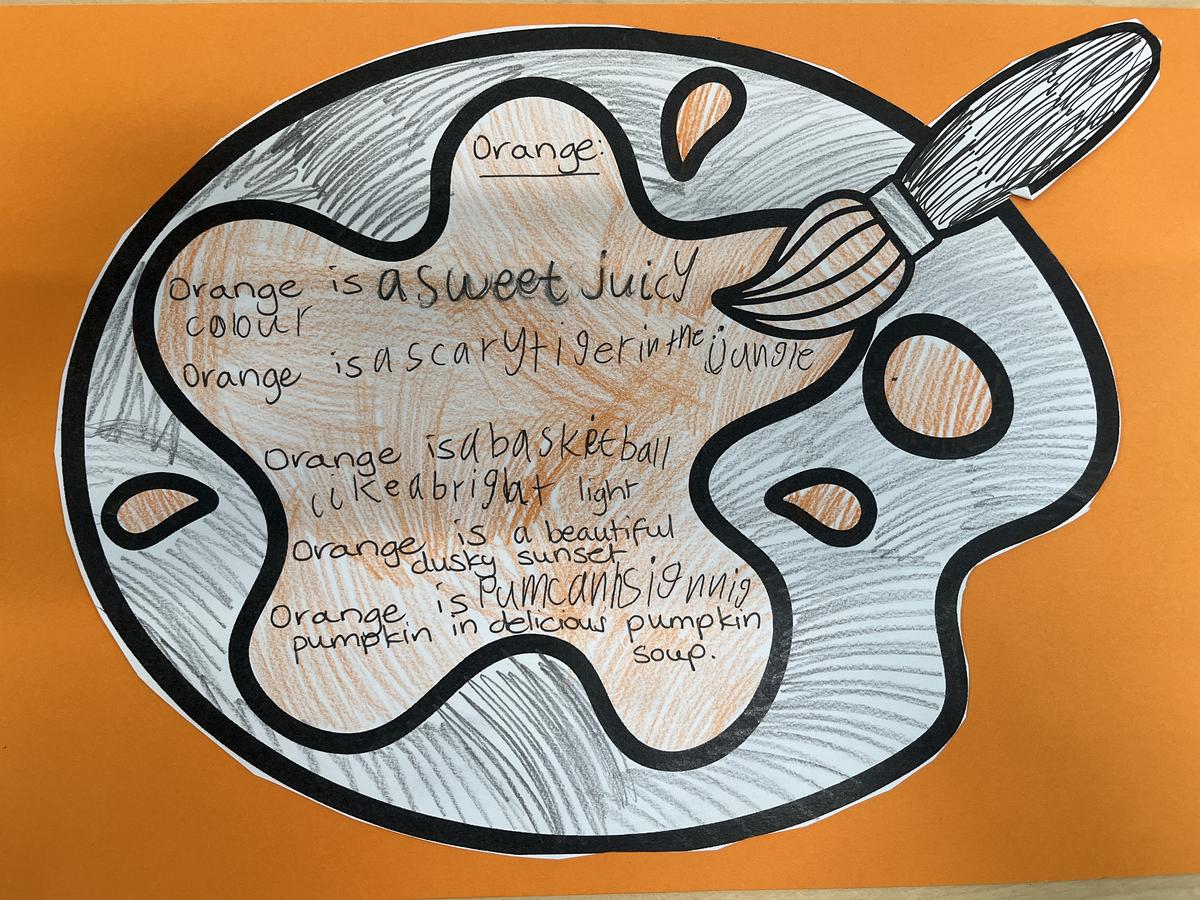 Orange:
Orange is a sweet juicy
colour
Orange is a scary tiger in the jungle
Orange is a basketball
like a bright light
Orange is a beautiful
dusky sunset
Orange is
pumpkin in delicious pumpkin
soup.